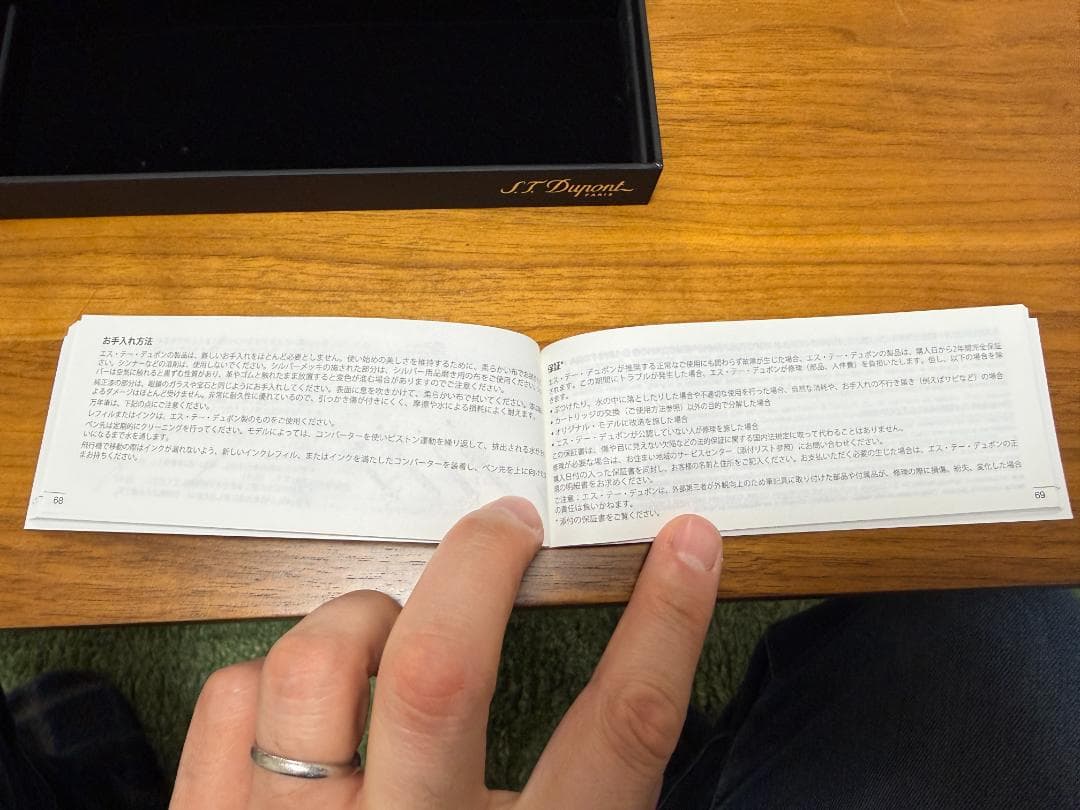 S.T. Dupont
PARIS
お手入れ方法
エス・テー・デュポンの製品は、難しいお手入れをほとんど必要としません。使い始めの美しさを維持するために、柔らかい布でお拭き
さい。シンナーなどの溶剤は、使用しないでください。シルバーメッキの施された部分は、シルバー用品磨き用の布をご使用ください。
バーは空気に触れると黒ずむ性質があり、革やゴムと触れたまま放置すると変色が進む場合がありますのでご注意ください。
純正漆の部分は、眼鏡のガラスや宝石と同じようにお手入れしてください。表面に息を吹きかけて、柔らかい布で拭いてください。
よるダメージはほとんど受けません。非常に耐久性に優れているので、引っかき傷が付きにくく、摩擦や水による損耗によく耐えます。
万年筆は、下記の点にご注意ください。
レフィルまたはインクは、エス・テー・デュポン製のものをご使用ください。
ペン先は定期的にクリーニングを行ってください。モデルによっては、コンバーターを使いピストン運動を繰り返して、排出される水が
いになるまで水を通します。
飛行機で移動の際はインクが漏れないよう、新しいインクレフィル、またはインクを満たしたコンバーターを装着し、ペン先を上に向け
お持ちください。
68
保証*
エス・テー・デュポンが推奨する正常なご使用にも関わらず故障が生じた場合、エス・テー・デュポンの製品は、購入日から2年間完全保証
されます。この期間にトラブルが発生した場合、エス・テー・デュポンが修理（部品、人件費）を負担いたします。但し、以下の場合を除
きます。
• ぶつけたり、水の中に落としたりした場合や不適切な使用を行った場合、自然な消耗や、お手入れの不行き届き（例えばサビなど）の場合
• カートリッジの交換（ご使用方法参照）以外の目的で分解した場合
• オリジナル・モデルに改造を施した場合
• エス・テー・デュポンが公認していない人が修理を施した場合
この保証書は、傷や目に見えない欠陥などの法的保証に関する国内法規定に取って代わることはありません。
修理が必要な場合は、お住まい地域のサービスセンター（添付リスト参照）にお問い合わせください。
購入日付の入った保証書を同封し、お客様の名前と住所をご記入ください。お支払いただく必要の生じた場合は、エス・テー・デュポンの正
規の明細書をお求めください。
ご注意：エス・テー・デュポンは、外部第三者が外観向上のため筆記具に取り付けた部品や付属品が、修理の際に損傷、紛失、変化した場合
の責任は負いかねます。
*添付の保証書をご覧ください。
69